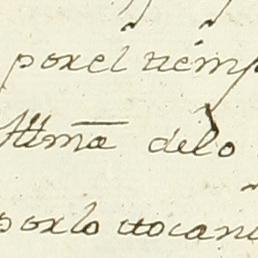 por el tiemp
Illma delo
por lo tocan